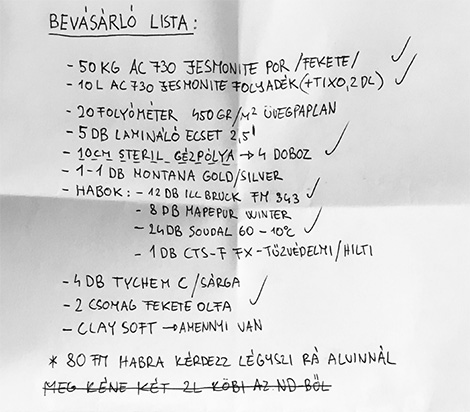 BEVÁSÁRLÓ LISTA:
- 50 KG AC 730 JESMONITE POR /FEKETE/
- 10 L AC 730 JESMONITE FOLYADÉK (+TIXO, 2 DL)
- 20 FOLYÓMÉTER 450 GR/M² ÜVEGPAPLAN
- 5 DB LAMINÁLÓ ECSET 2,5"
- 10CM STERIL GÉZPÓLYA → 4 DOBOZ
- 1-1 DB MONTANA GOLD/SILVER
- HABOK: - 12 DB ILLBRUCK FM 343
- 8 DB MAPEPUR WINTER
- 24DB SOUDAL 60 -10°C
- 1 DB CTS-F FX-TŰZVÉDELMI/HILTI
- 4 DB TYCHEM C/SÁRGA
- 2 CSOMAG FEKETE OLFA
- CLAY SOFT → AMENNYI VAN
* 80 FM HABRA KÉRDEZZ LÉGYSZI RÁ ALVINNÁL
MEG KÉNE KÉT 2L KÖBI AZ ND-BŐL